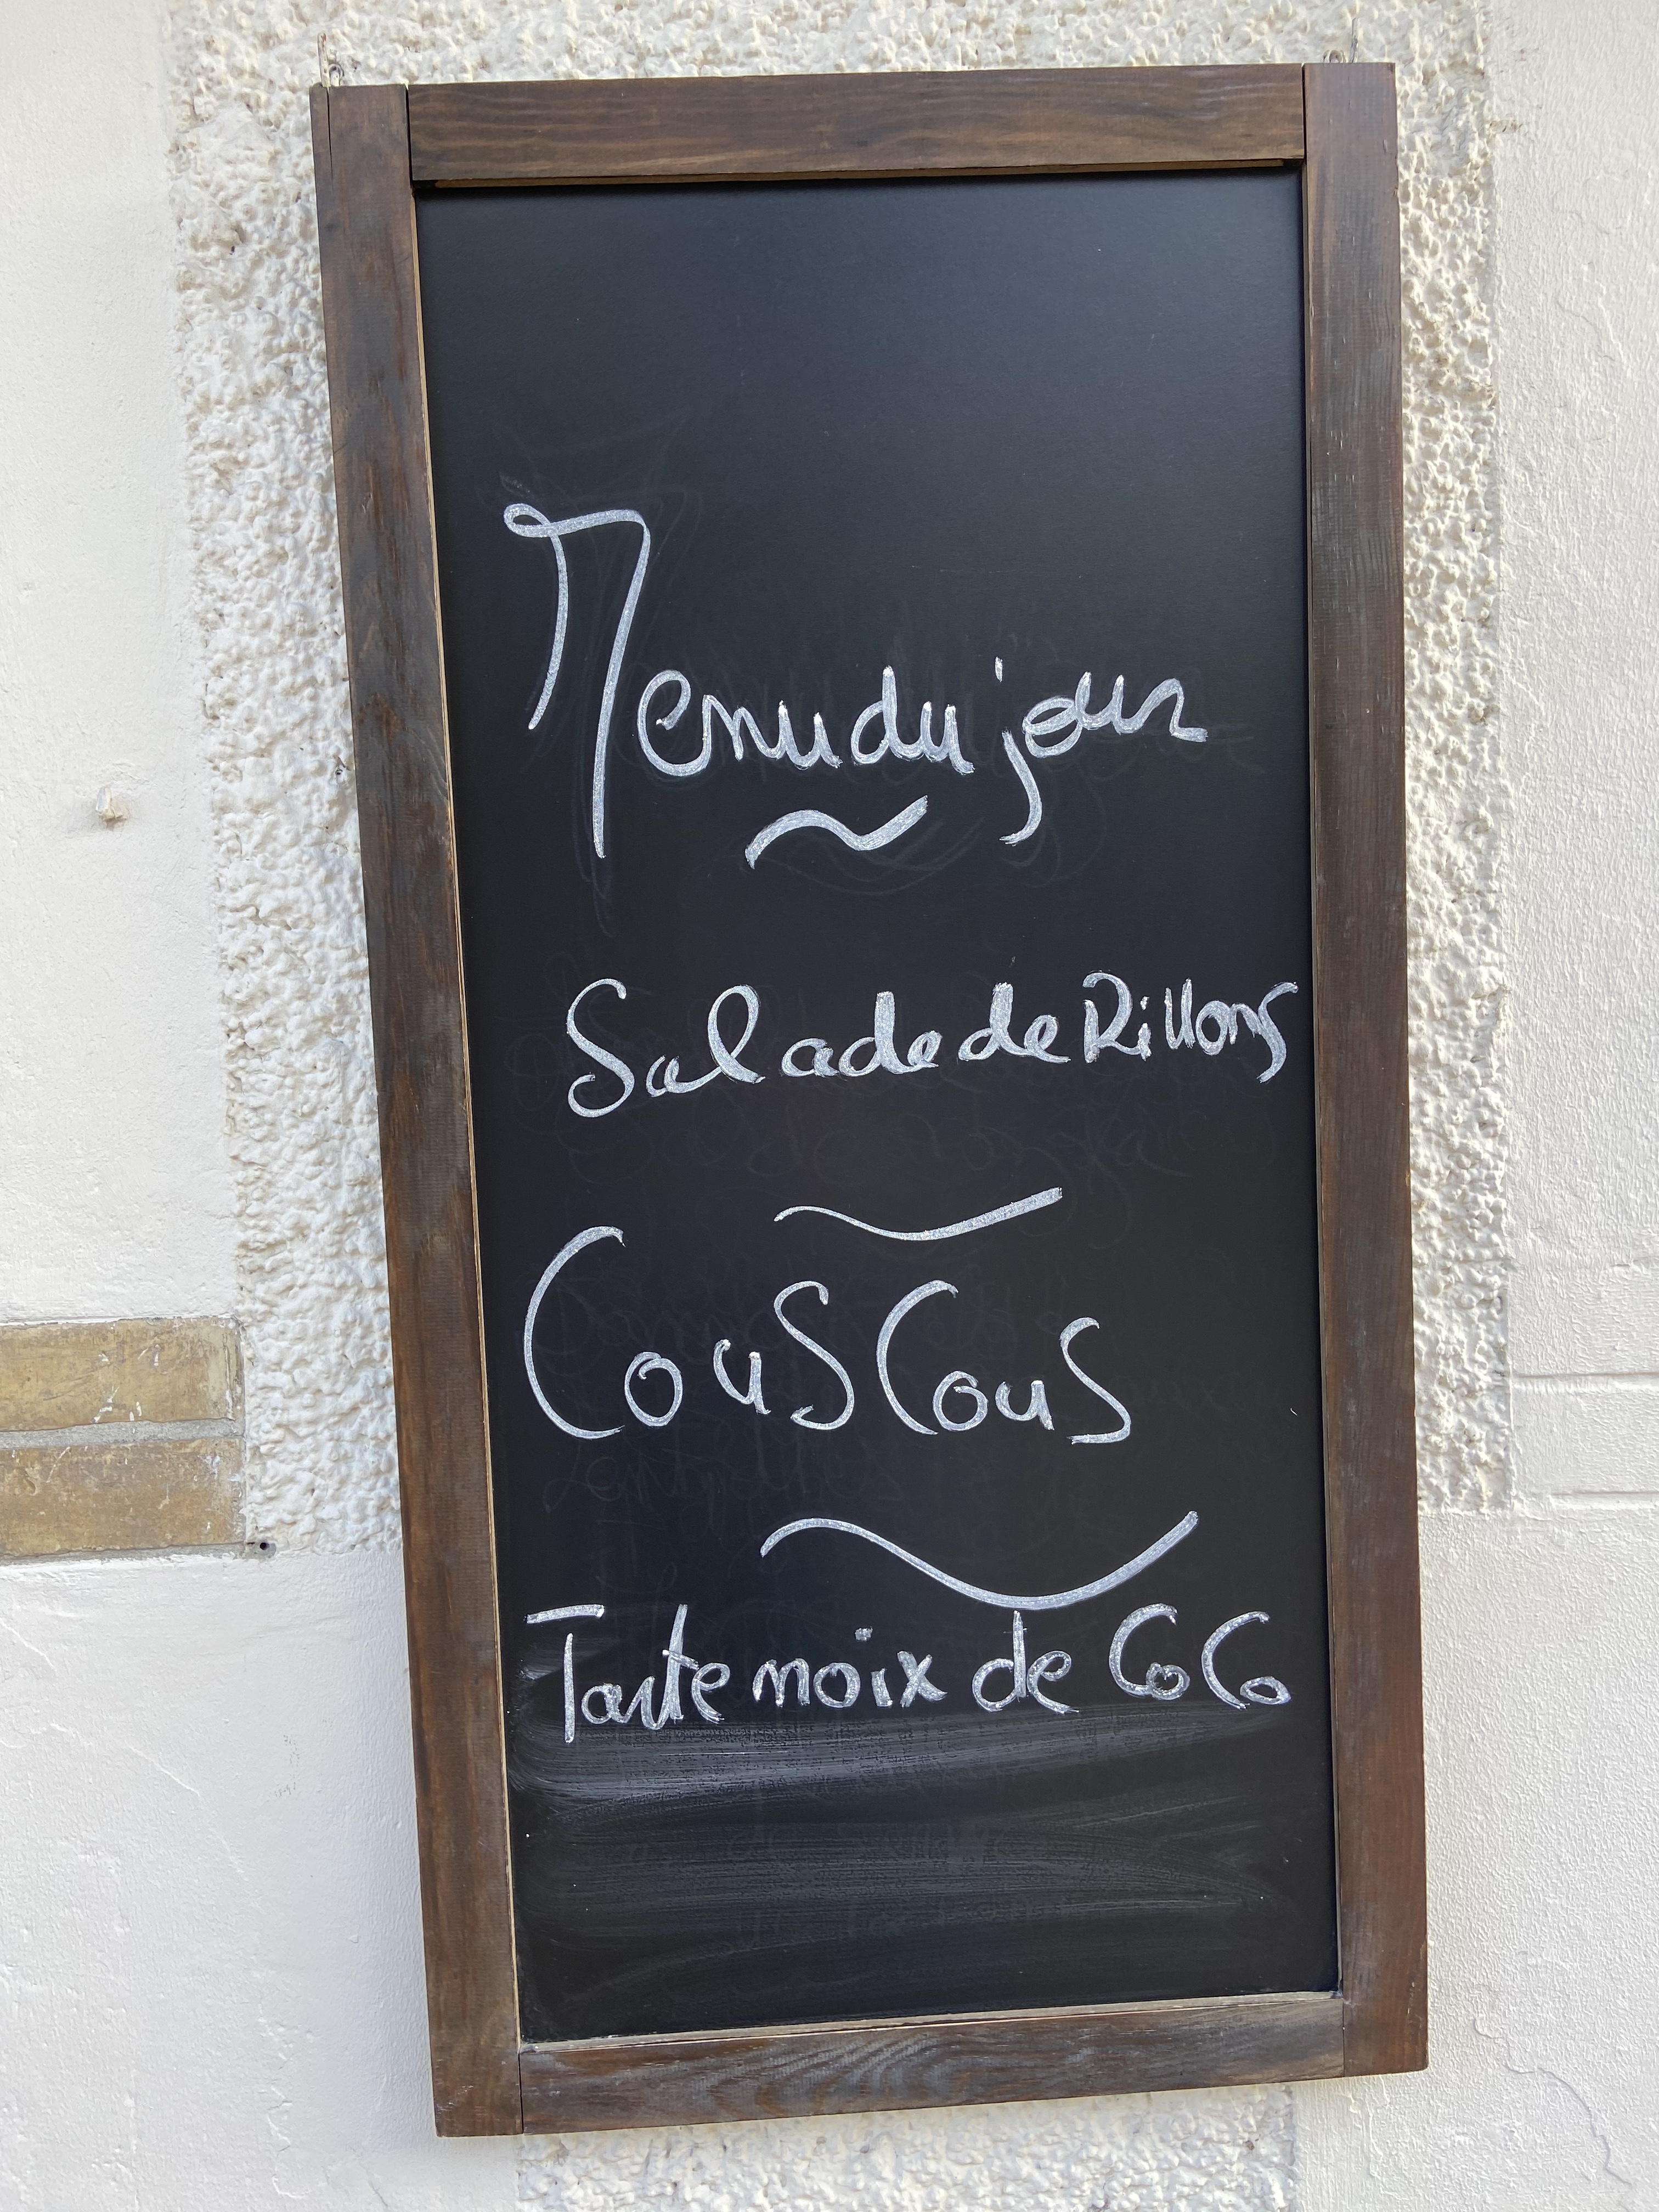 Menu du jour
Salade de Rillons
CousCous
Tarte noix de CoCo